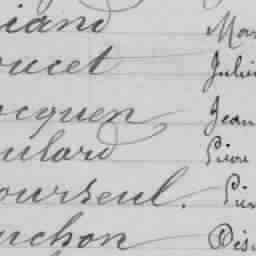 iand Mar
oucet Juli
ocquen Jean
oulard Pierre
ourseul. Pier
uchon Dési